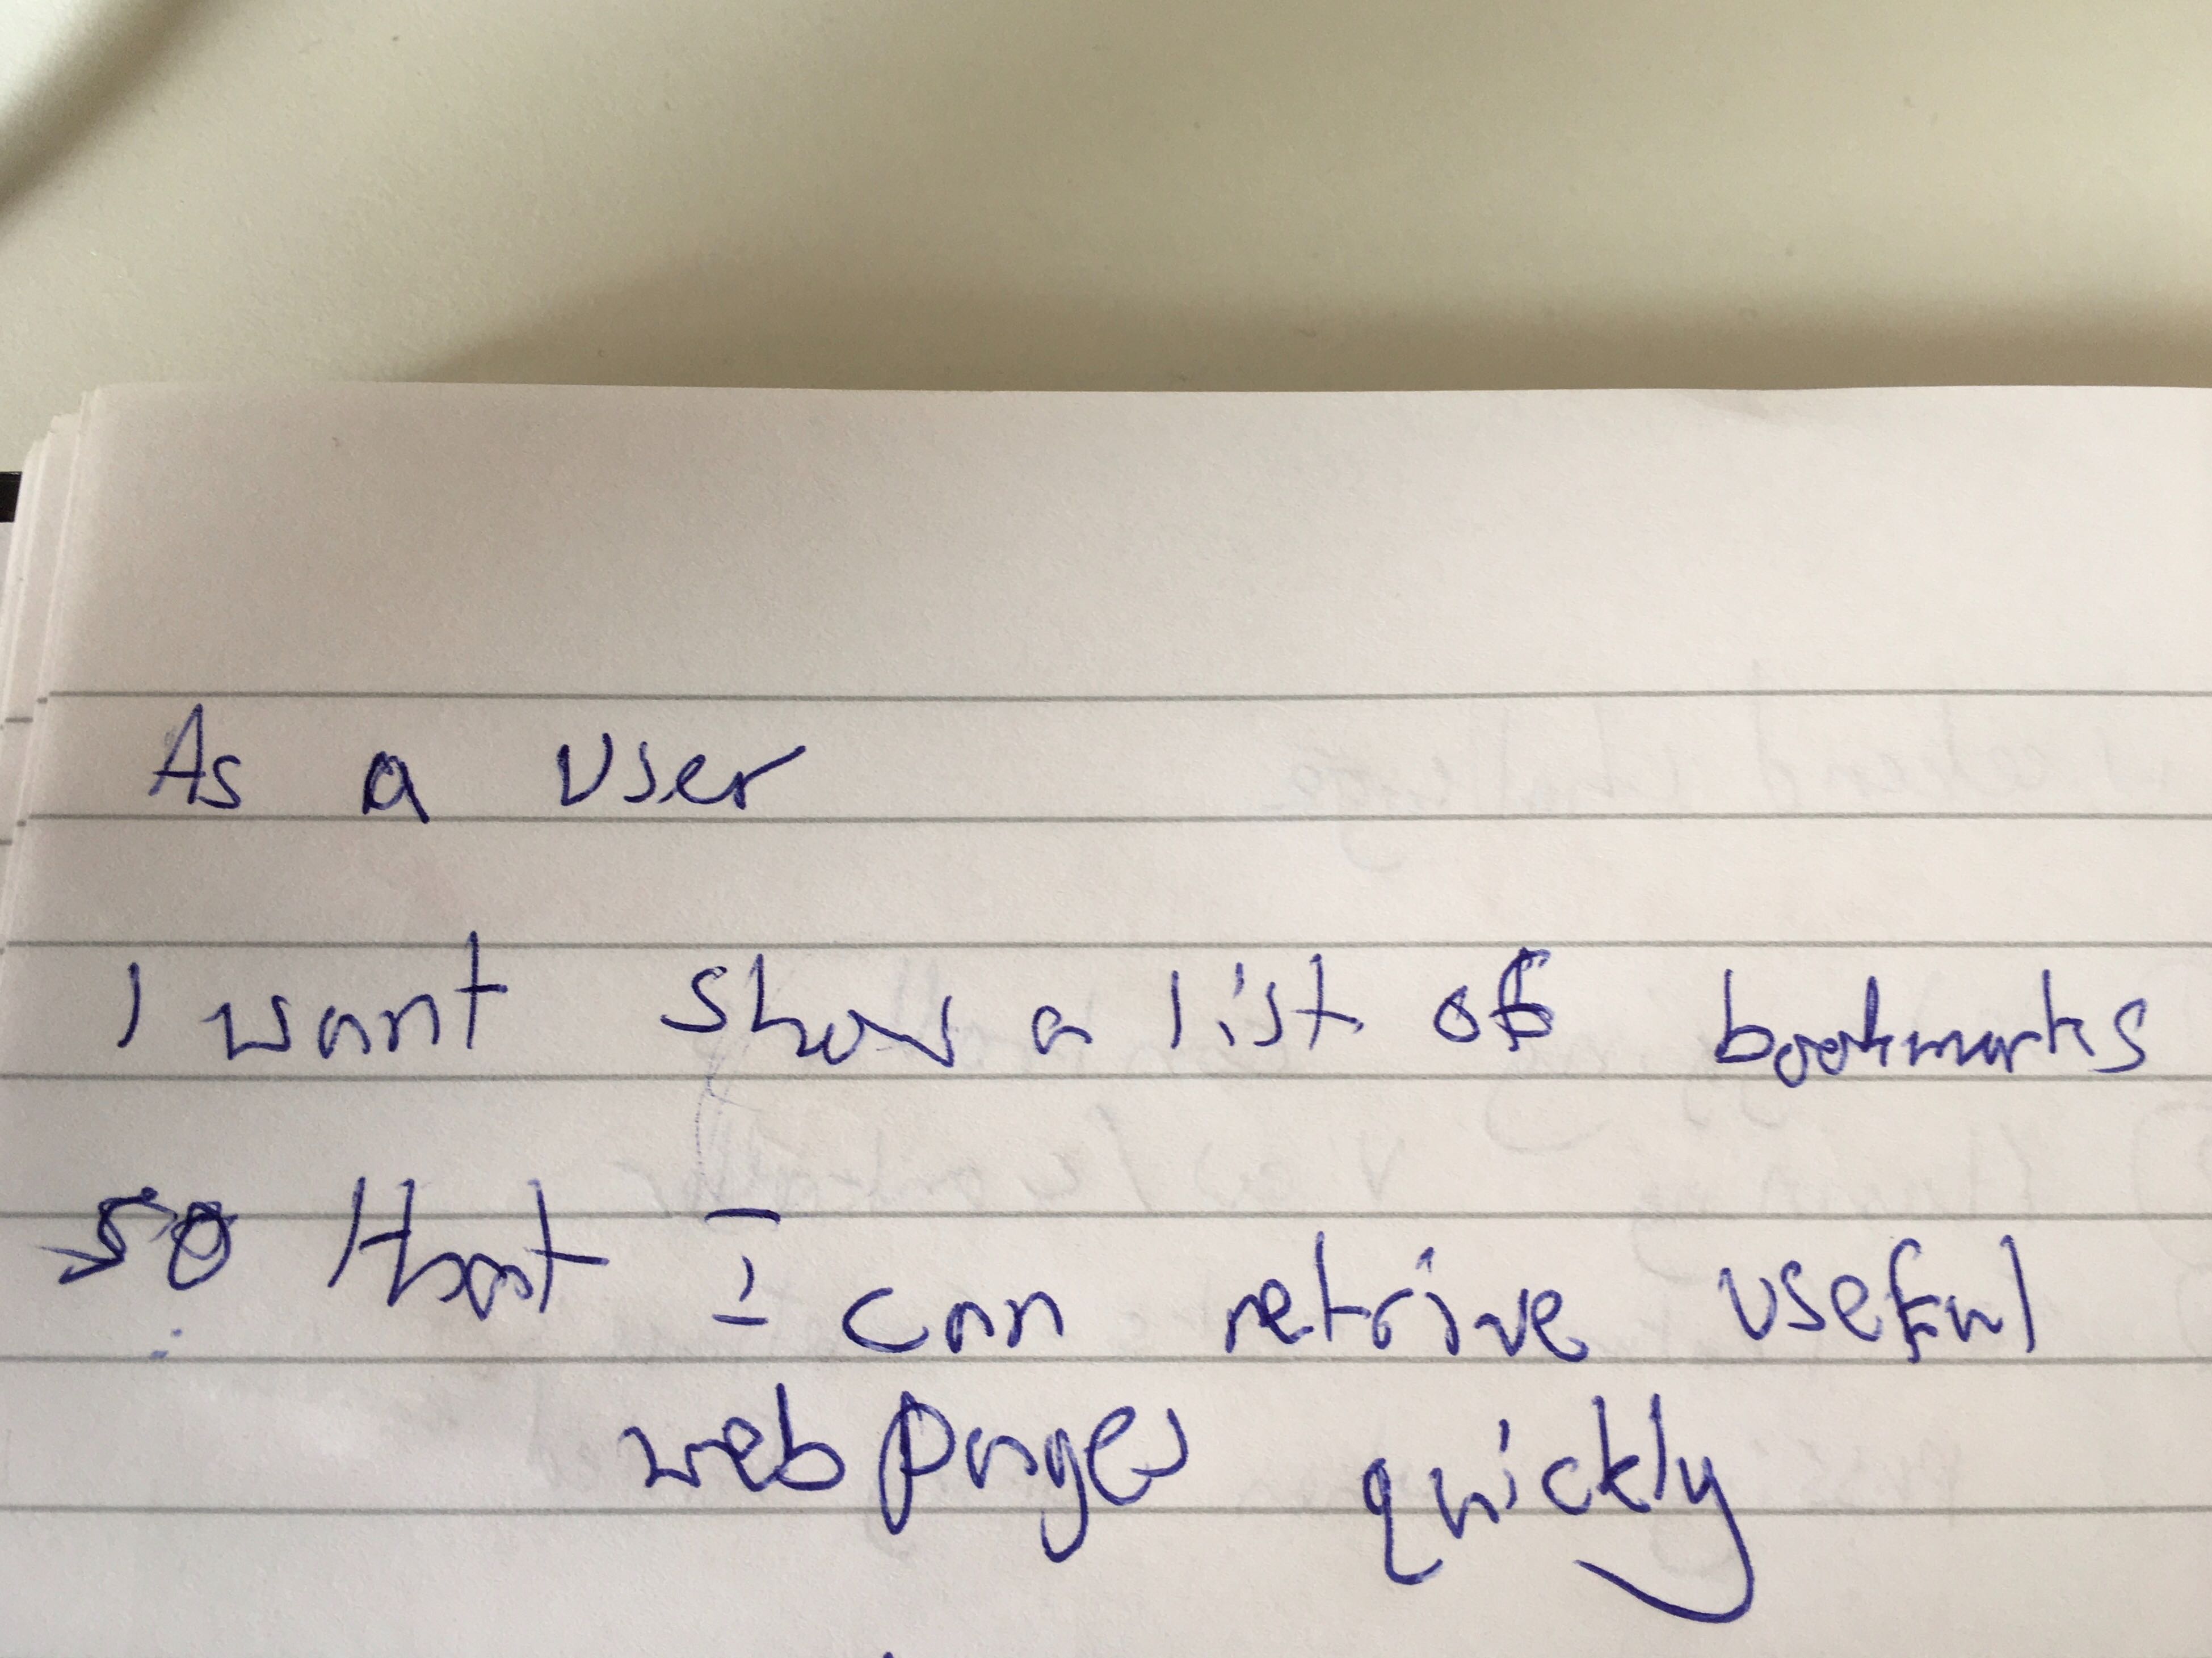 As a user
I want show a list of bookmarks
so that I can retrive useful
web pages quickly